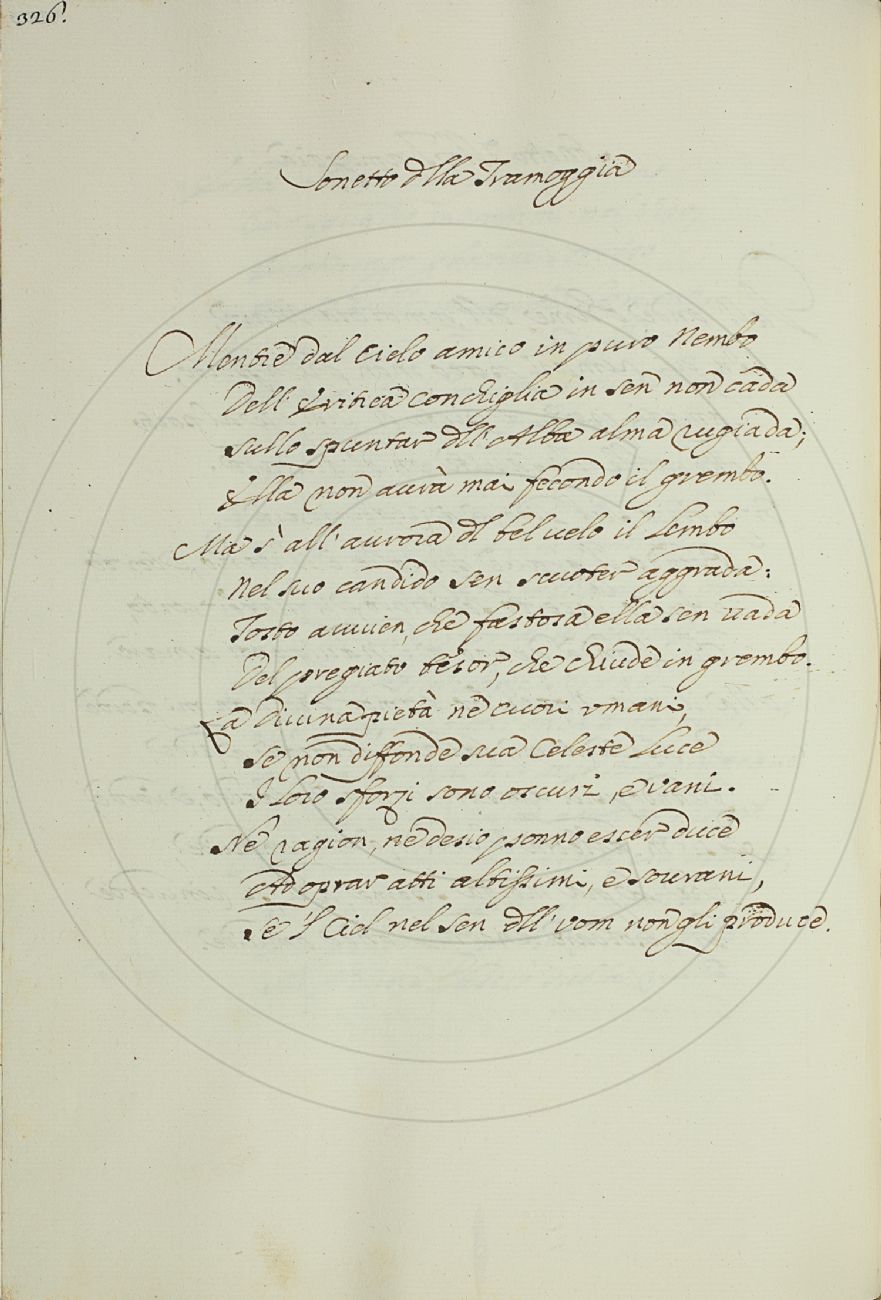 326.
Sonetto della Tramoggia
Mentre dal Cielo amico in puro Nembo
Dell' Eritrea Conchiglia in sen non cada
sullo spuntar dell' Alba alma rugiada;
Ella non avrà mai fecondo il grembo.
Ma s' all' aurora del bel velo il Lembo
Nel suo candido sen scuoter aggrada:
Tosto avvien, che fastosa ella sen vada
Del pregiato tesor, che chiude in grembo.
La Divina pietà ne cuori umani,
se non diffonde sua Celeste Luce
I Loro sforzi sono oscuri, e vani.
Nè ragion, nè desio ponno esser duce
Ad oprar atti altissimi, e sovrani,
se 'l Ciel nel sen dell' uom non gli produce.